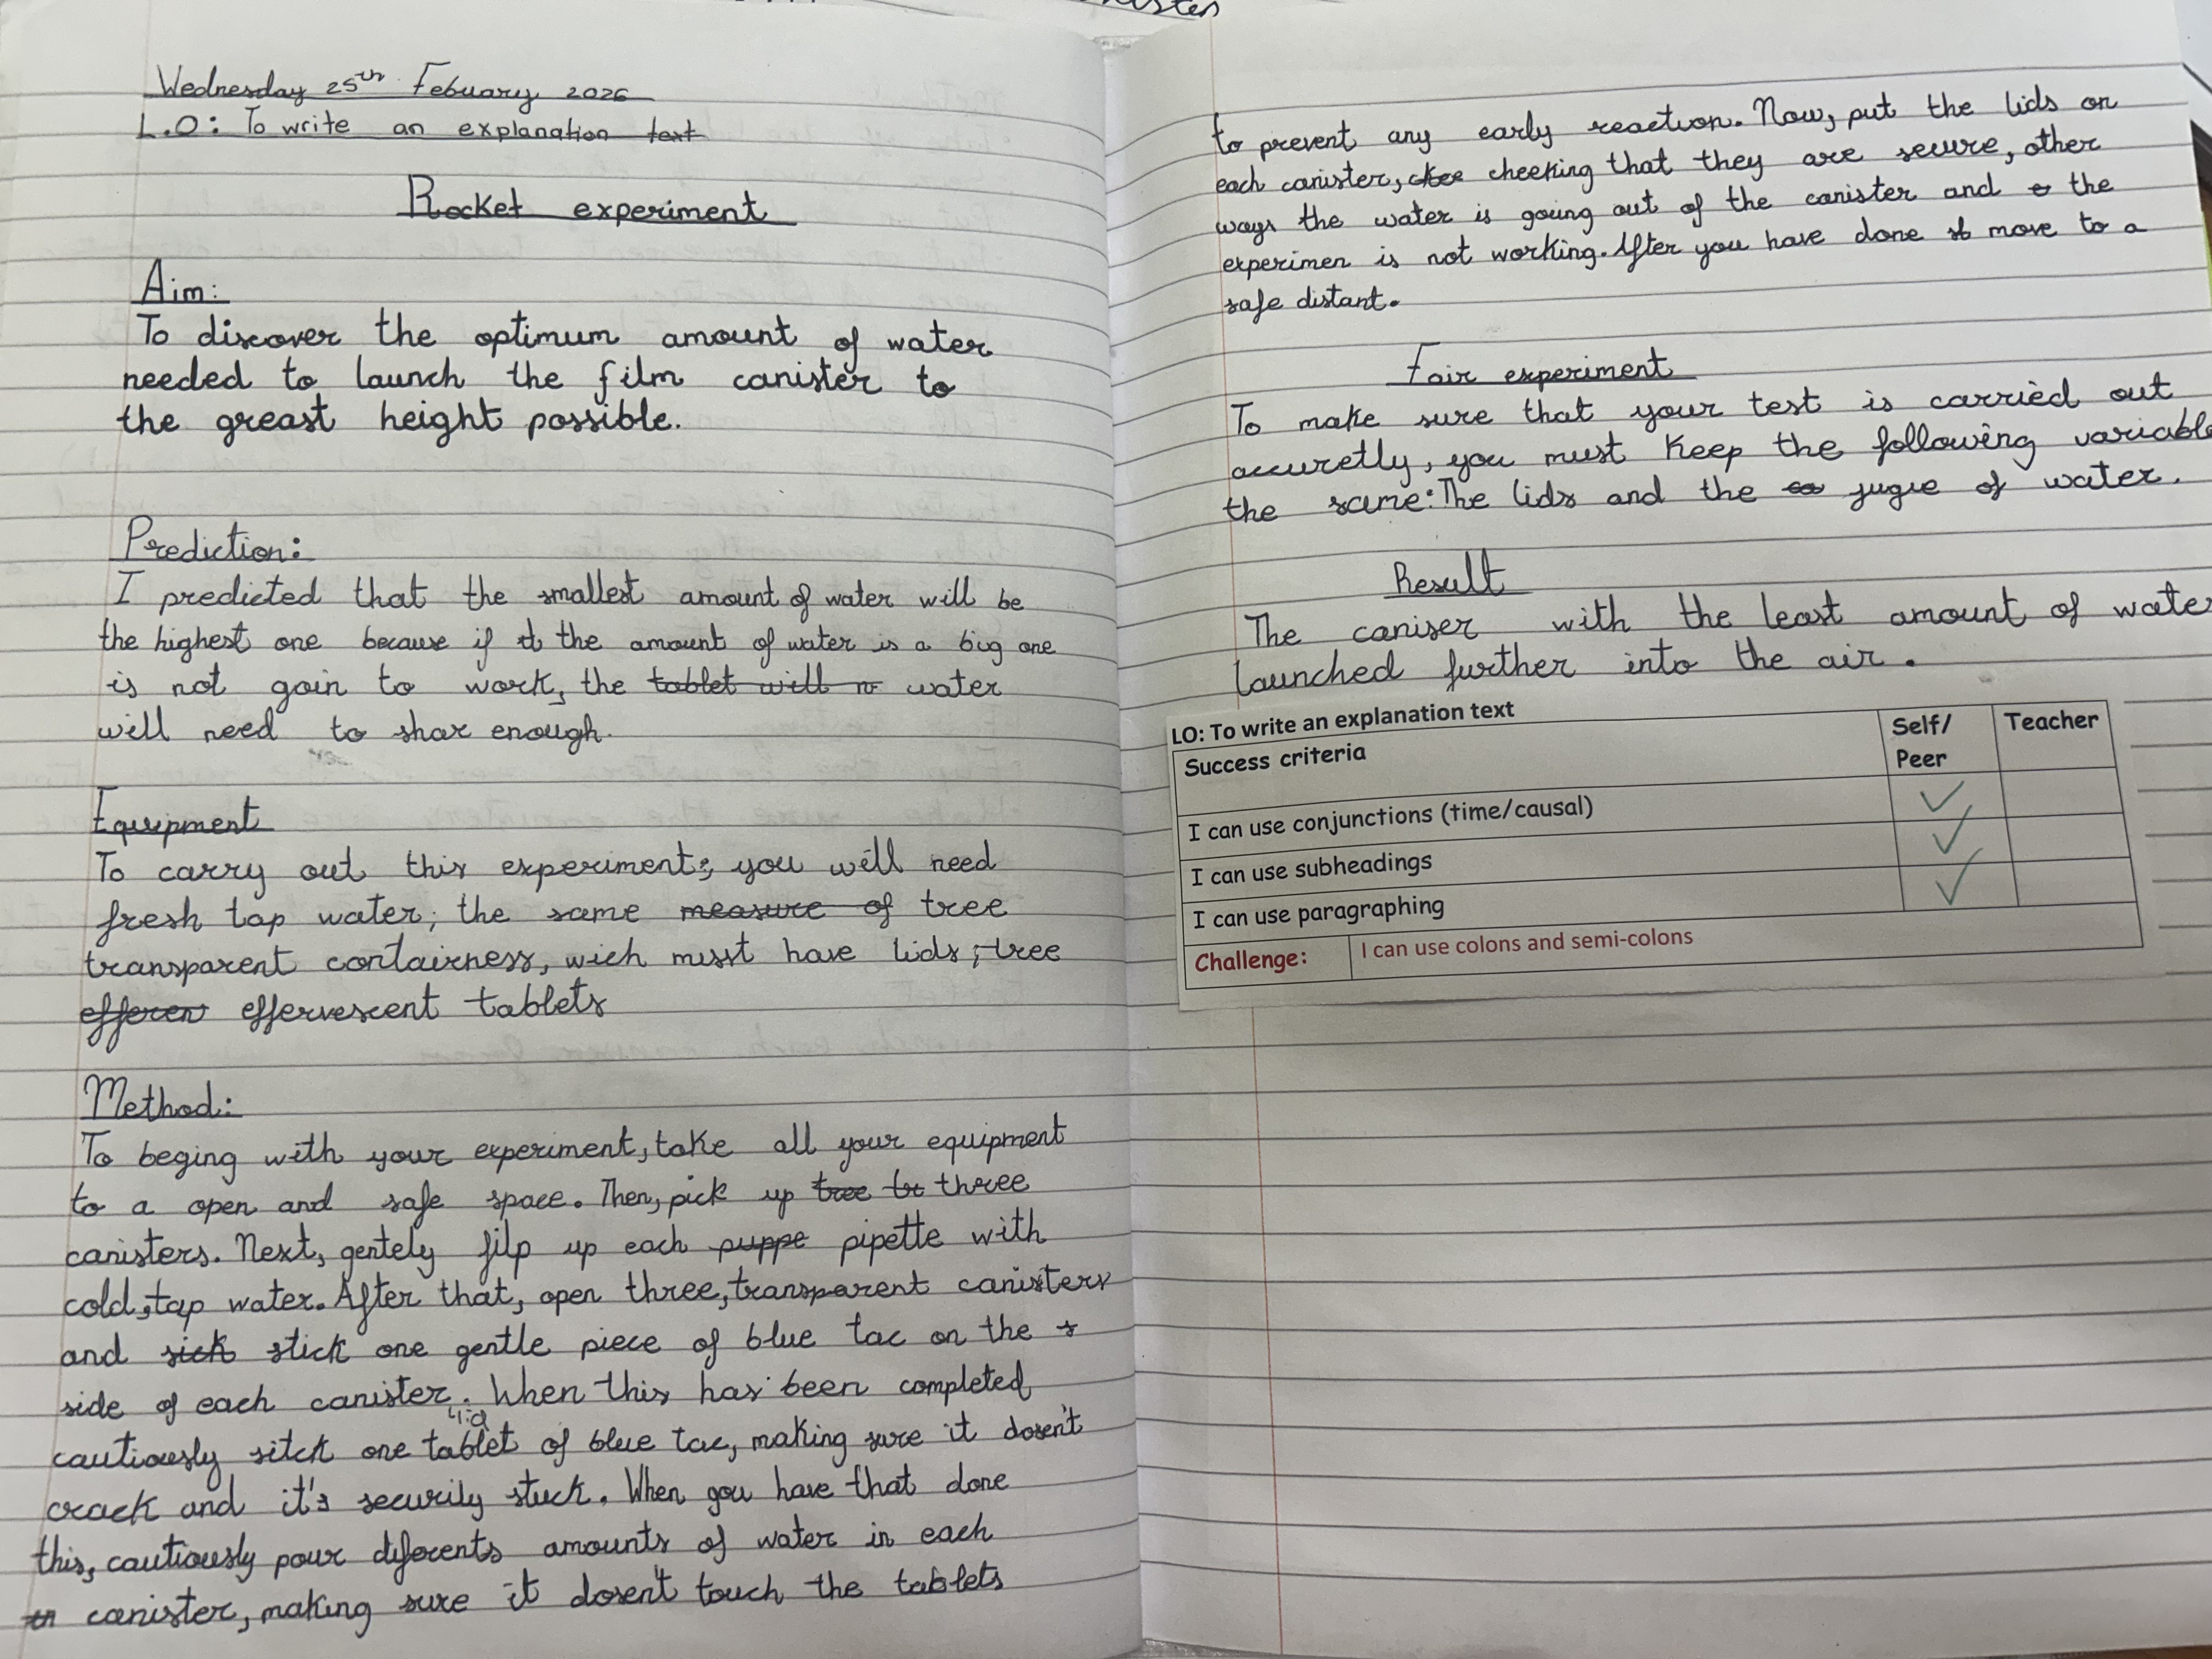 Wednesday 25th February 2026
L.O: To write an explanation text
Rocket experiment
Aim:
To discover the optimum amount of water
needed to launch the film canister to
the greast height possible.
Prediction:
I predicted that the smallest amount of water will be
the highest one because if the amount of water is a big one
is not goin to work, the tablet will n water
will need to shar enough.
Equipment
To carry out this experiment; you will need
fresh tap water; the same measure of tree
transparent contairness, wich musst have lids; tree
efferen effervescent tablets
Method:
To beging with your experiment, take all your equipment
to a open and safe space. Then, pick up tree tr three
canisters. Next, gentely filp up each puppe pipette with
cold, tap water. After that, open three, transparent canisters
and sick stick one gentle piece of blue tac on the s
side of each canister. When this has been completed
cautiously sitck one tablet of blue tac, making sure it dosen't
crack and it's securily stuck. When you have that done
this, cautiously pour diferents amounts of water in each
canister, making sure it dosen't touch the tablets
to prevent any early reaction. Now, put the lids on
each canister, chee cheeking that they are secure, other
ways the water is going out of the canister and the
experimen is not working. After you have done move to a
safe distant.
Fair experiment
To make sure that your test is carried out
accuretly, you must keep the following variable
the same: The lids and the jugue of water.
Result
The caniser with the least amount of water
launched further into the air.
LO: To write an explanation text
Success criteria
Self/
Peer
Teacher
I can use conjunctions (time/causal)
I can use subheadings
I can use paragraphing
Challenge:
I can use colons and semi-colons